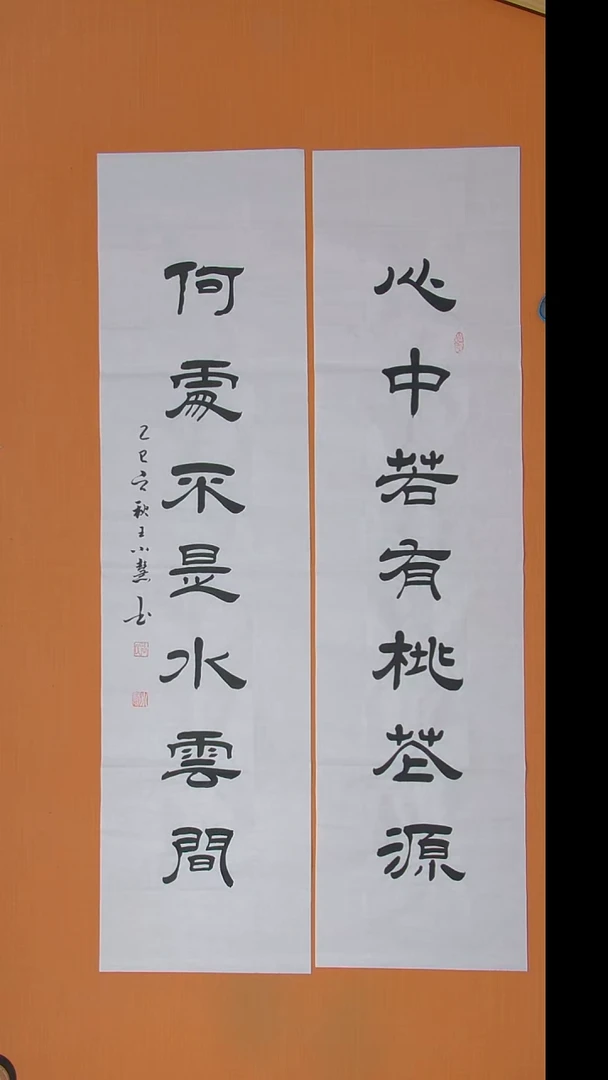 心中若有桃花源
何處不是水雲間
乙巳之秋王小慧書